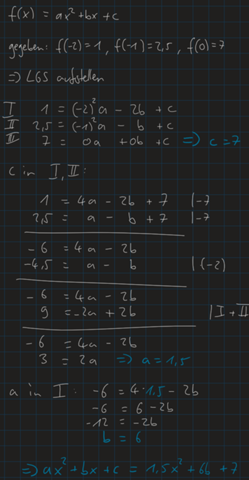 f(x) = ax² + bx + c
gegeben: f(-2) = 1, f(-1) = 2,5, f(0) = 7
=> LGS aufstellen
I 1 = (-2)²a - 2b + c
II 2,5 = (-1)²a - b + c
III 7 = 0a + 0b + c => c = 7
c in I, II:
1 = 4a - 2b + 7 | -7
2,5 = a - b + 7 | -7
-6 = 4a - 2b
-4,5 = a - b | (-2)
-6 = 4a - 2b
9 = -2a + 2b | I + II
-6 = 4a - 2b
3 = 2a => a = 1,5
a in I: -6 = 4 · 1,5 - 2b
-6 = 6 - 2b
-12 = -2b
b = 6
=> ax² + bx + c = 1,5x² + 6b + 7